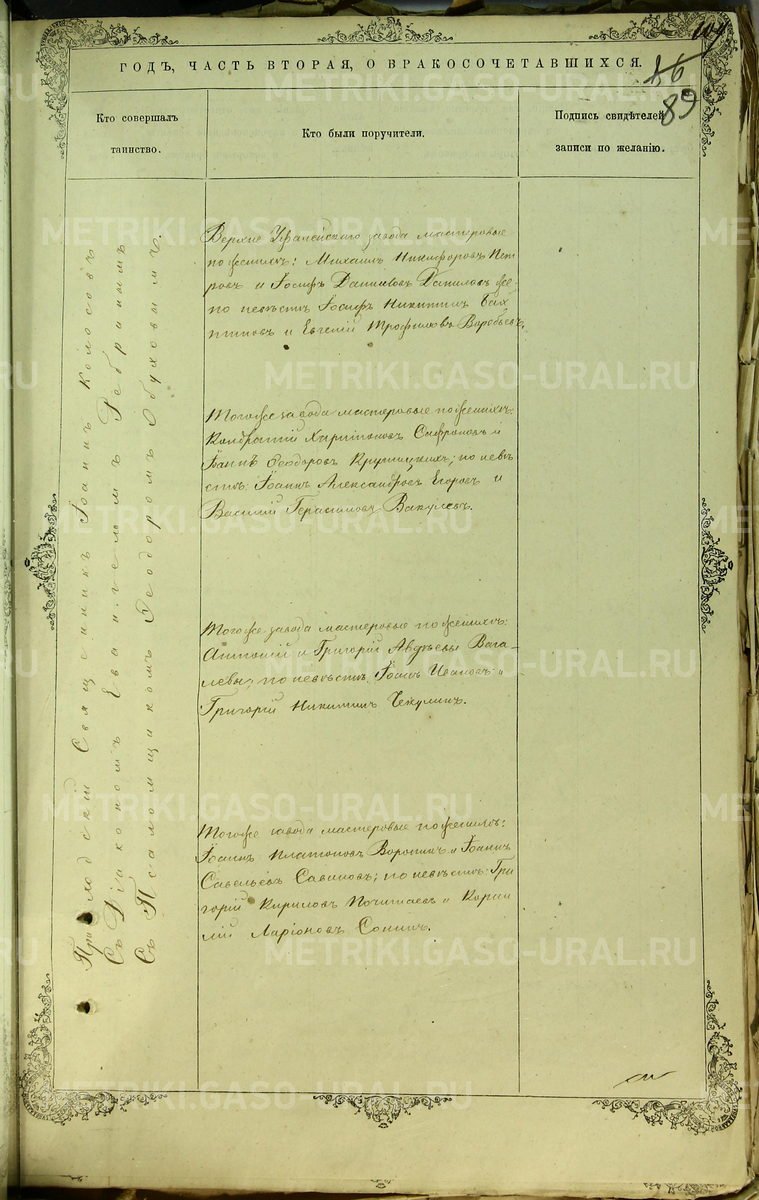 109
86
89
ГОДЪ, ЧАСТЬ ВТОРАЯ, О БРАКОСОЧЕТАВШИХСЯ.
Кто совершалъ
таинство.
Кто были поручители.
Подпись свидѣтелей
записи по желанію.
Приходскій Священникъ Іоаннъ Колосовъ
съ Діакономъ Евангеломъ Ребринымъ
съ Псаломщикомъ Ѳеодоромъ Обуховымъ.
Верхне Уфалейскаго завода мастеровые
по женихѣ: Михаилъ Никифоровъ Пет
ровъ и Іосифъ Даниловъ Даниловъ же,
по невѣстѣ Іосифъ Никитинъ
и Евгеній Трофимовъ Воробьевъ.
Тогоже завода мастеровые по женихѣ:
Кондратій Харитоновъ Сафроновъ и
Іоаннъ Ѳеодоровъ Крутицкихъ; по невѣ
стѣ: Іоаннъ Александровъ Егоровъ и
Василій Герасимовъ Вакулевъ.
Тогоже завода мастеровые по женихѣ:
Антоній и Григорій Авдѣевы Вага-
левы, по невѣстѣ Іоаннъ Ивановъ и
Григорій Никитинъ Чекулинъ.
Тогоже завода мастеровые по женихѣ:
Іоаннъ Платоновъ Воронинъ и Іоаннъ
Савельевъ Савиновъ; по невѣстѣ: Гри
горій Кириловъ Почитаевъ и Корни
лій Ларіоновъ Сонинъ.
METRIKI.GASO-URAL.RU